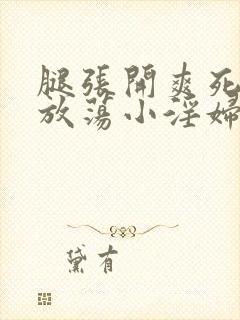 腿張開爽死
放蕩小淫婦
黛有